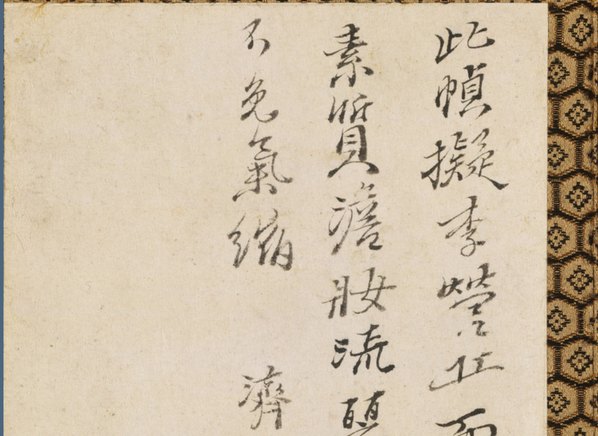 此幀擬李營丘而
素質澹妝流
不免氣縮
濟